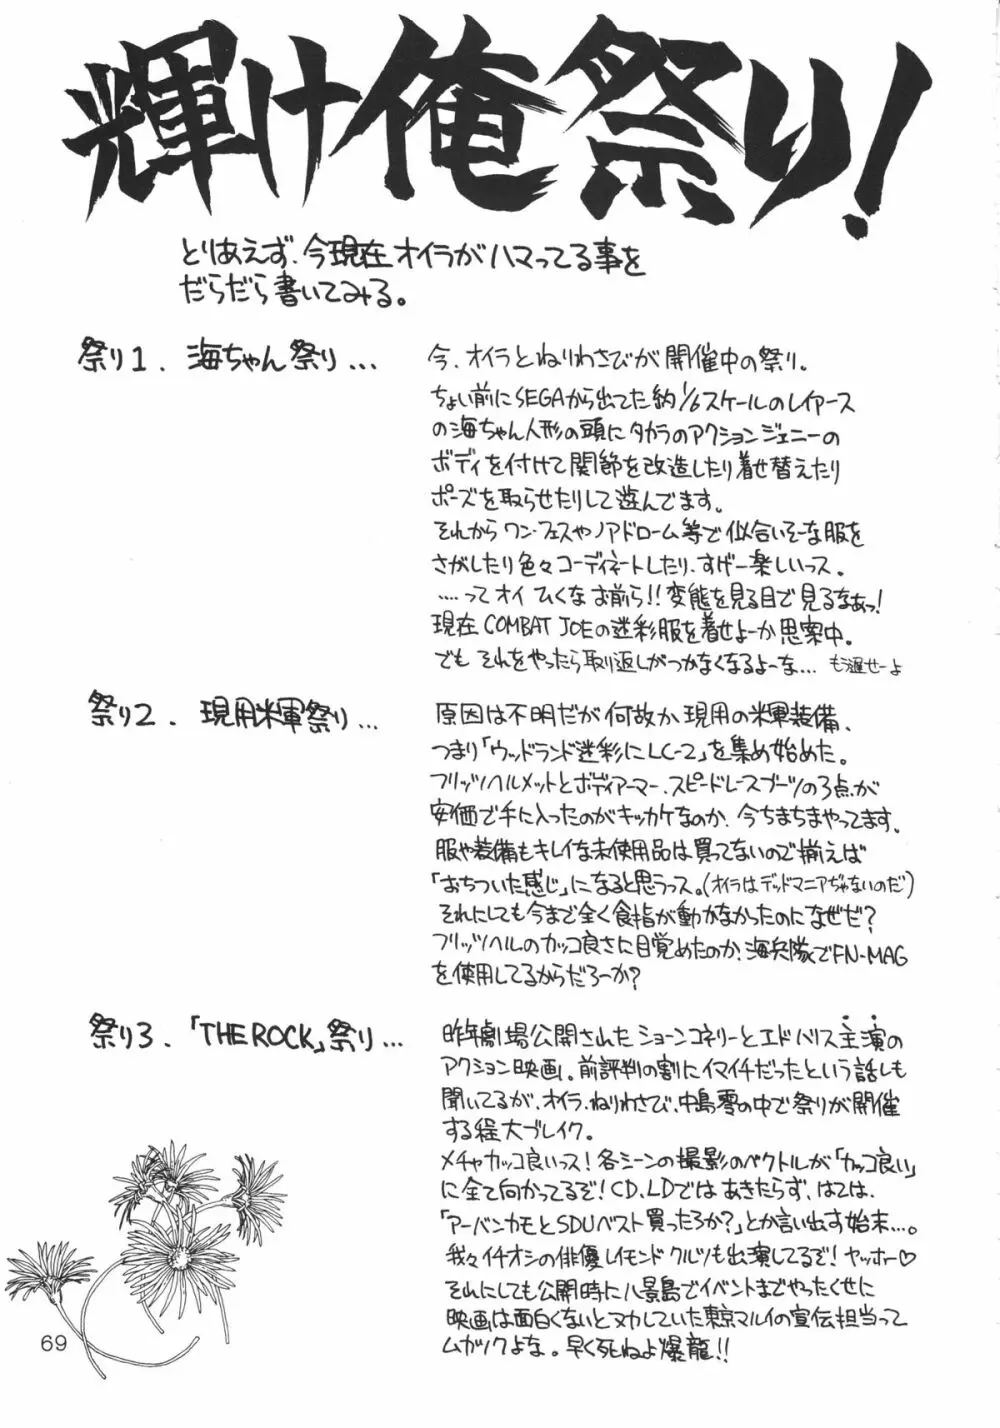 輝け俺祭り!
とりあえず、今現在オイラがハマってる事を
だらだら書いてみる。
祭り1. 海ちゃん祭り...
今、オイラとねりわさびが開催中の祭り。
ちょい前にSEGAから出てた約1/6スケールのレイアース
の海ちゃん人形の頭にタカラのアクションジェニーの
ボディを付けて関節を改造したり着せ替えたり
ポーズを取らせたりして遊んでます。
それからワン・フェスやノアドローム等で似合いそーな服を
さがしたり色々コーディネートしたり、すげー楽しいっス。
....ってオイ ひくなお前ら!!変態を見る目で見るなぁっ!
現在COMBAT JOEの迷彩服を着せよーか思案中。
でも それをやったら取り返しがつかなくなるよーな... もう遅せーよ
祭り2. 現用米軍祭り...
原因は不明だが何故か現用の米軍装備、
つまり「ウッドランド迷彩にLC-2」を集め始めた。
フリッツヘルメットとボディアーマー、スピードレースブーツの3点が
安価で手に入ったのがキッカケなのか、今ちまちまやってます。
服や装備もキレイな未使用品は買ってないので揃えば
「おちついた感じ」になると思うっス。(オイラはデッドマニアぢゃないのだ)
それにしても今まで全く食指が動かなかったのになぜだ?
フリッツヘルのカッコ良さに目覚めたのか、海兵隊でFN-MAG
を使用してるからだろーか?
祭り3.「THE ROCK」祭り...
昨年劇場公開されたショーンコネリーとエドハリス主演の
アクション映画。前評判の割にイマイチだったという話しも
聞いてるが、オイラ、ねりわさび、中島零の中で祭りが開催
する程大ブレイク。
メチャカッコ良いっス!各シーンの撮影のベクトルが「カッコ良い」
に全て向かってるぞ!CD、LDではあきたらず、はては、
「アーバンカモとSDUベスト買ったろか?」とか言い出す始末...。
我々イチオシの俳優レイモンド クルツも出演してるぞ!ヤッホー♡
それにしても公開時に八景島でイベントまでやったくせに
映画は面白くないとヌカしていた東京マルイの宣伝担当って
ムカツクよな。早く死ねよ爆龍!!
69